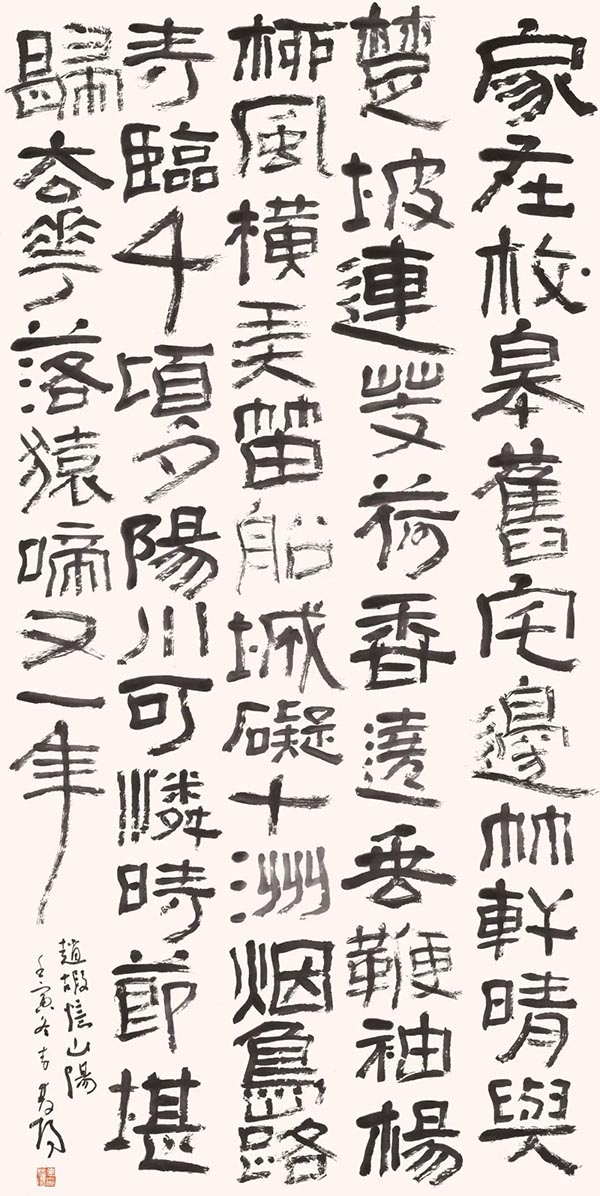 家在枚皋舊宅邊竹軒晴與
楚坡連芰荷香遶垂鞭袖楊
柳風橫弄笛船城礙十洲烟島路
寺臨千頃夕陽川可憐時節堪
歸去華落猿啼又一年
趙嘏憶山陽
壬寅冬